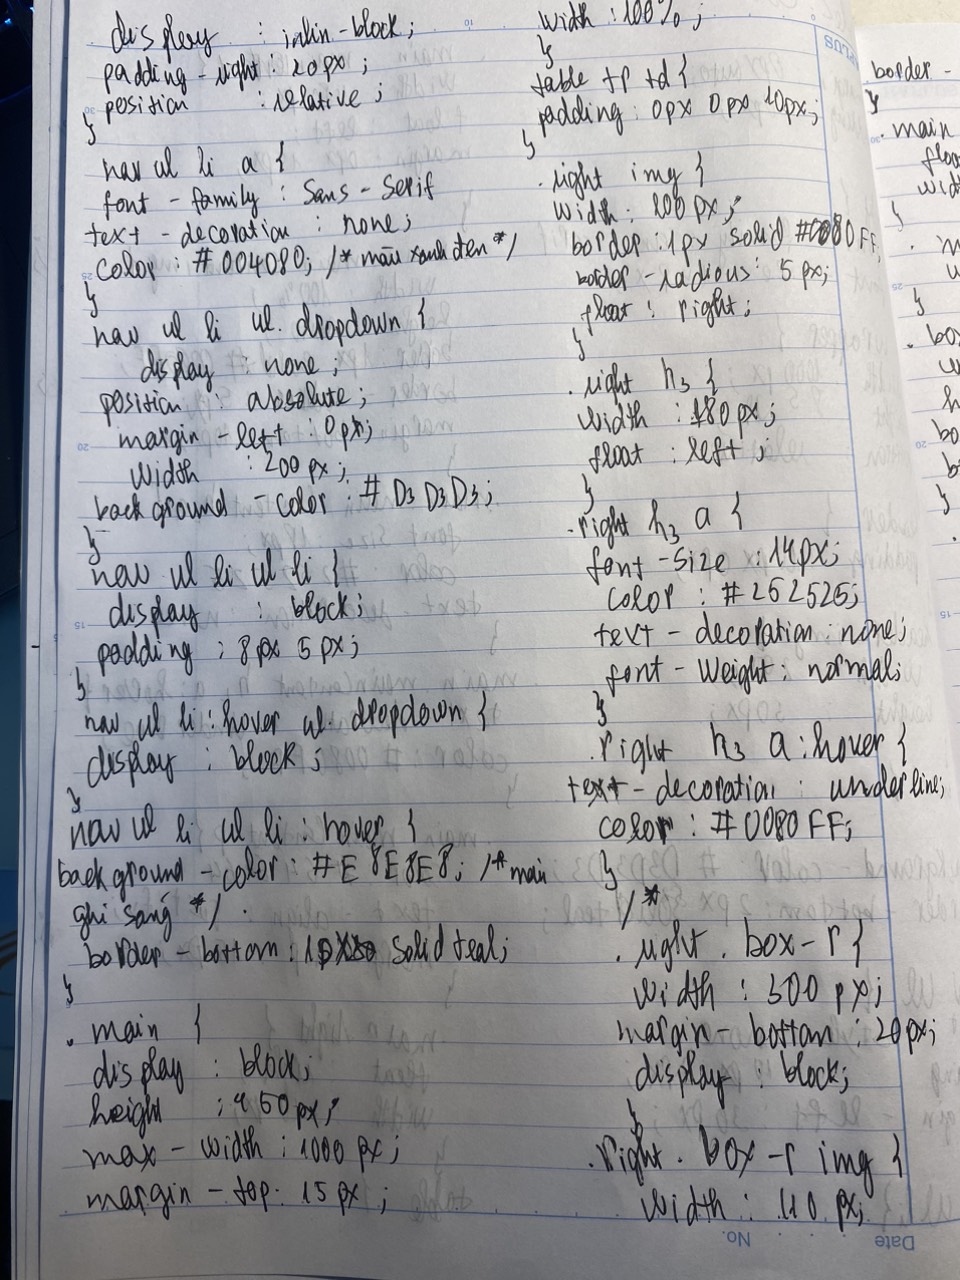 display : inlin-block;
padding-right : 20px;
position : relative;
}
nav ul li a {
font-family : Sans-Serif
text-decoration : none;
color : #004080; /* màu xanh đen */
}
nav ul li ul.dropdown {
display : none;
position : absolute;
margin-left : 0px;
width : 200px;
background-color : #D3D3D3;
}
nav ul li ul li {
display : block;
padding : 8px 5px;
}
nav ul li:hover ul.dropdown {
display : block;
}
nav ul li ul li : hover {
background-color : #E8E8E8; /* màu
ghi sáng */
border-bottom : solid teal;
}
.main {
display : block;
height : 450px;
max-width : 1000px;
margin-top : 15px;
width : 100%;
}
table tr td {
padding : 0px 0px 10px;
}
.right img {
width : 100px;
border : 1px solid #0080FF
border-radious : 5px;
float : right;
}
.right h3 {
width : 180px;
float : left;
}
.right h3 a {
font-size : 14px;
color : #252525;
text-decoration : none;
font-weight : normal;
}
.right h3 a:hover {
text-decoration : underline;
color : #0080FF;
}
/*
.right .box-r {
width : 300px;
margin-bottom : 20px;
display : block;
}
.right .box-r img {
width : 110px;
border-
}
.main
}
}
}
No.
Date